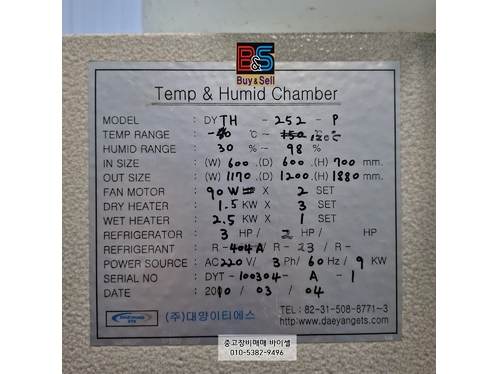 B&S
Buy&Sell
Temp & Humid Chamber
MODEL : DYTH - 252 - P
TEMP RANGE : ℃ ~ 120℃
HUMID RANGE : 30 % ~ 98 %
IN SIZE : (W) 600 .(D) 600 .(H) 700 mm.
OUT SIZE : (W) 1170 .(D) 1200 .(H) 1880 mm.
FAN MOTOR : 90 W X 2 SET
DRY HEATER : 1.5 KW X 3 SET
WET HEATER : 2.5 KW X 1 SET
REFRIGERATOR : 3 HP/ 2 HP/ HP
REFRIGERANT : R-404A / R-23 / R-
POWER SOURCE : AC220 V/ 3 Ph/ 60 Hz/ 9 KW
SERIAL NO : DYT-100304- A - 1
DATE : 2010 / 03 / 04
(주)대양이티에스
TEL : 82-31-508-8771~3
http\www.daeyangets.com
중고장비매매 바이셀
010-5382-9496